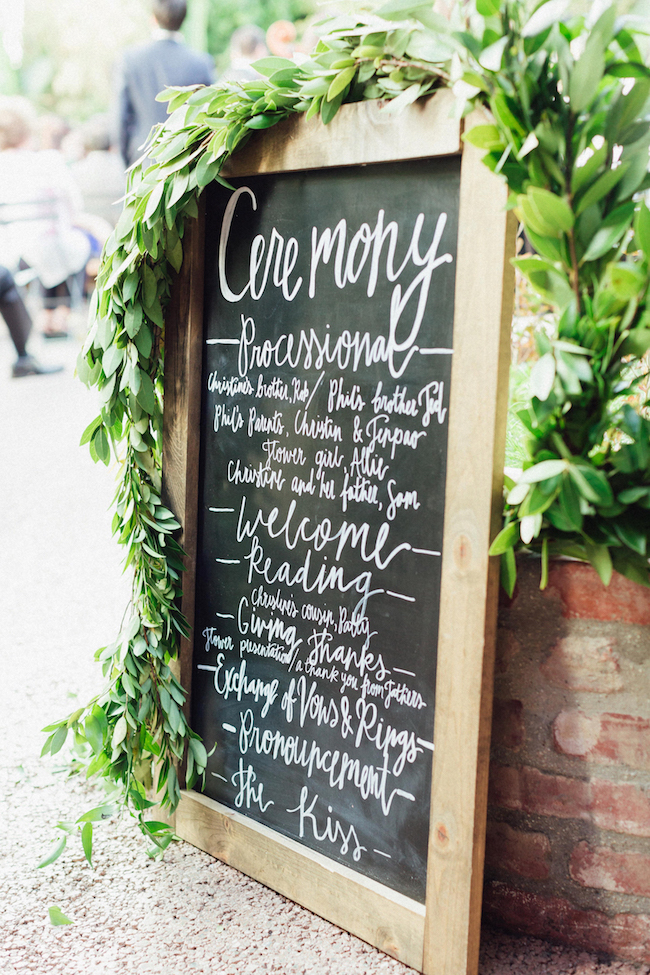 Ceremony
Processional
Christine's brother, Rob / Phil's brother Ted
Phil's Parents, Christin & Jinpao
Flower girl, Allie
Christine and her father, Sam
Welcome
Reading
Christine's cousin, Patty
Giving Thanks
Flower presentation/a thank you from Fathers
Exchange of Vows & Rings
Pronouncement
The Kiss